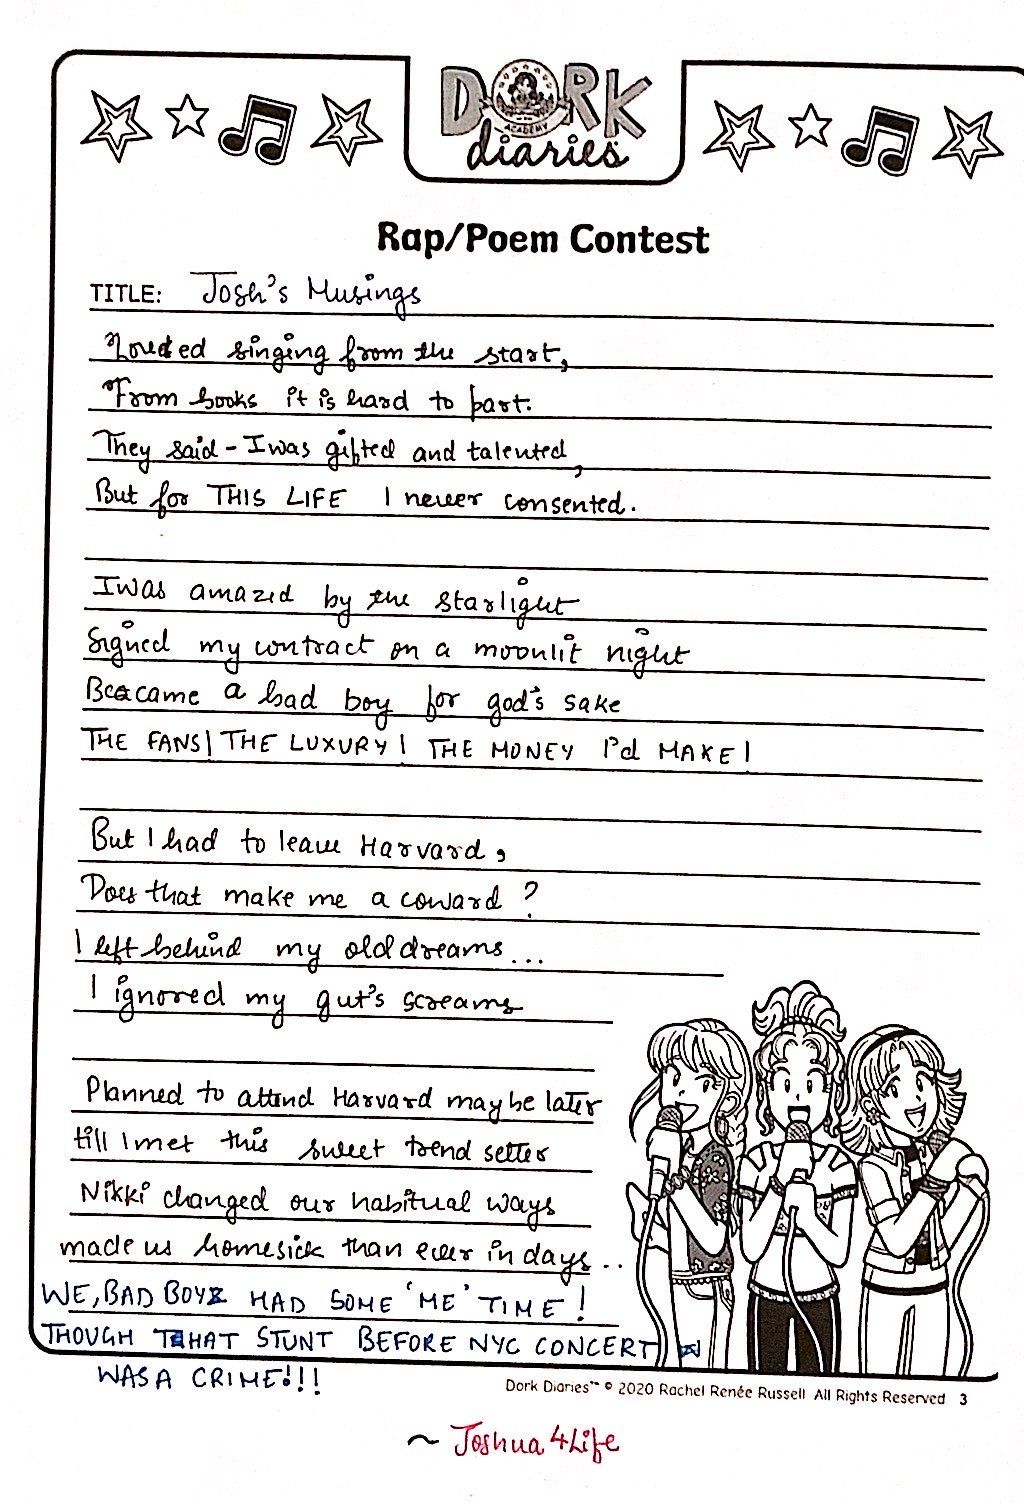 DORK
ACADEMY
diaries
Rap/Poem Contest
TITLE: Josh's Musings
Loved singing from the start,
From books it is hard to part.
They said - I was gifted and talented,
But for THIS LIFE I never consented.
I was amazed by the starlight
Signed my contract on a moonlit night
Became a bad boy for god's sake
THE FANS! THE LUXURY! THE MONEY I'd MAKE!
But I had to leave Harvard,
Does that make me a coward?
I left behind my old dreams...
I ignored my gut's screams
Planned to attend Harvard maybe later
till I met this sweet trend setter
Nikki changed our habitual ways
made us homesick than ever in days...
WE, BAD BOYZ HAD SOME 'ME' TIME!
THOUGH THAT STUNT BEFORE NYC CONCERT
WAS A CRIME!!!
Dork Diaries™ © 2020 Rachel Renée Russell All Rights Reserved 3
~ Joshua4Life